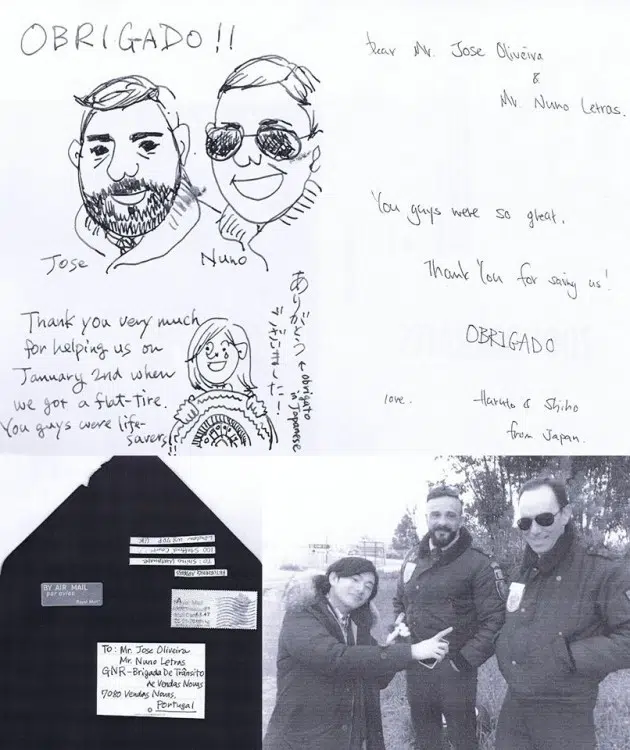 OBRIGADO!!
Jose
Nuno
Thank you very much
for helping us on
January 2nd when
we got a flat-tire.
You guys were life-
savers
ありがとう
← obrigato
in Japanese
Dear Mr. Jose Oliveira
&
Mr. Nuno Letras.
You guys were so great.
Thank You for saving us!
OBRIGADO
love.
Haruto & Shiho
from Japan.
BY AIR MAIL
par avion
Royal Mail
To: Mr. Jose Oliveira
Mr. Nuno Letras
GNR-Brigada De Trânsito
de Vendas Novas
7080 Vendas Novas.
Portugal